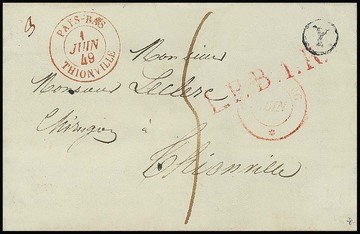 PAYS-BAS
1
JUIN
49
THIONVILLE
Monsieur
Monsieur Leclerc
Chirurgien à
Thionville
5
L.P.B.1.R.
JUIN